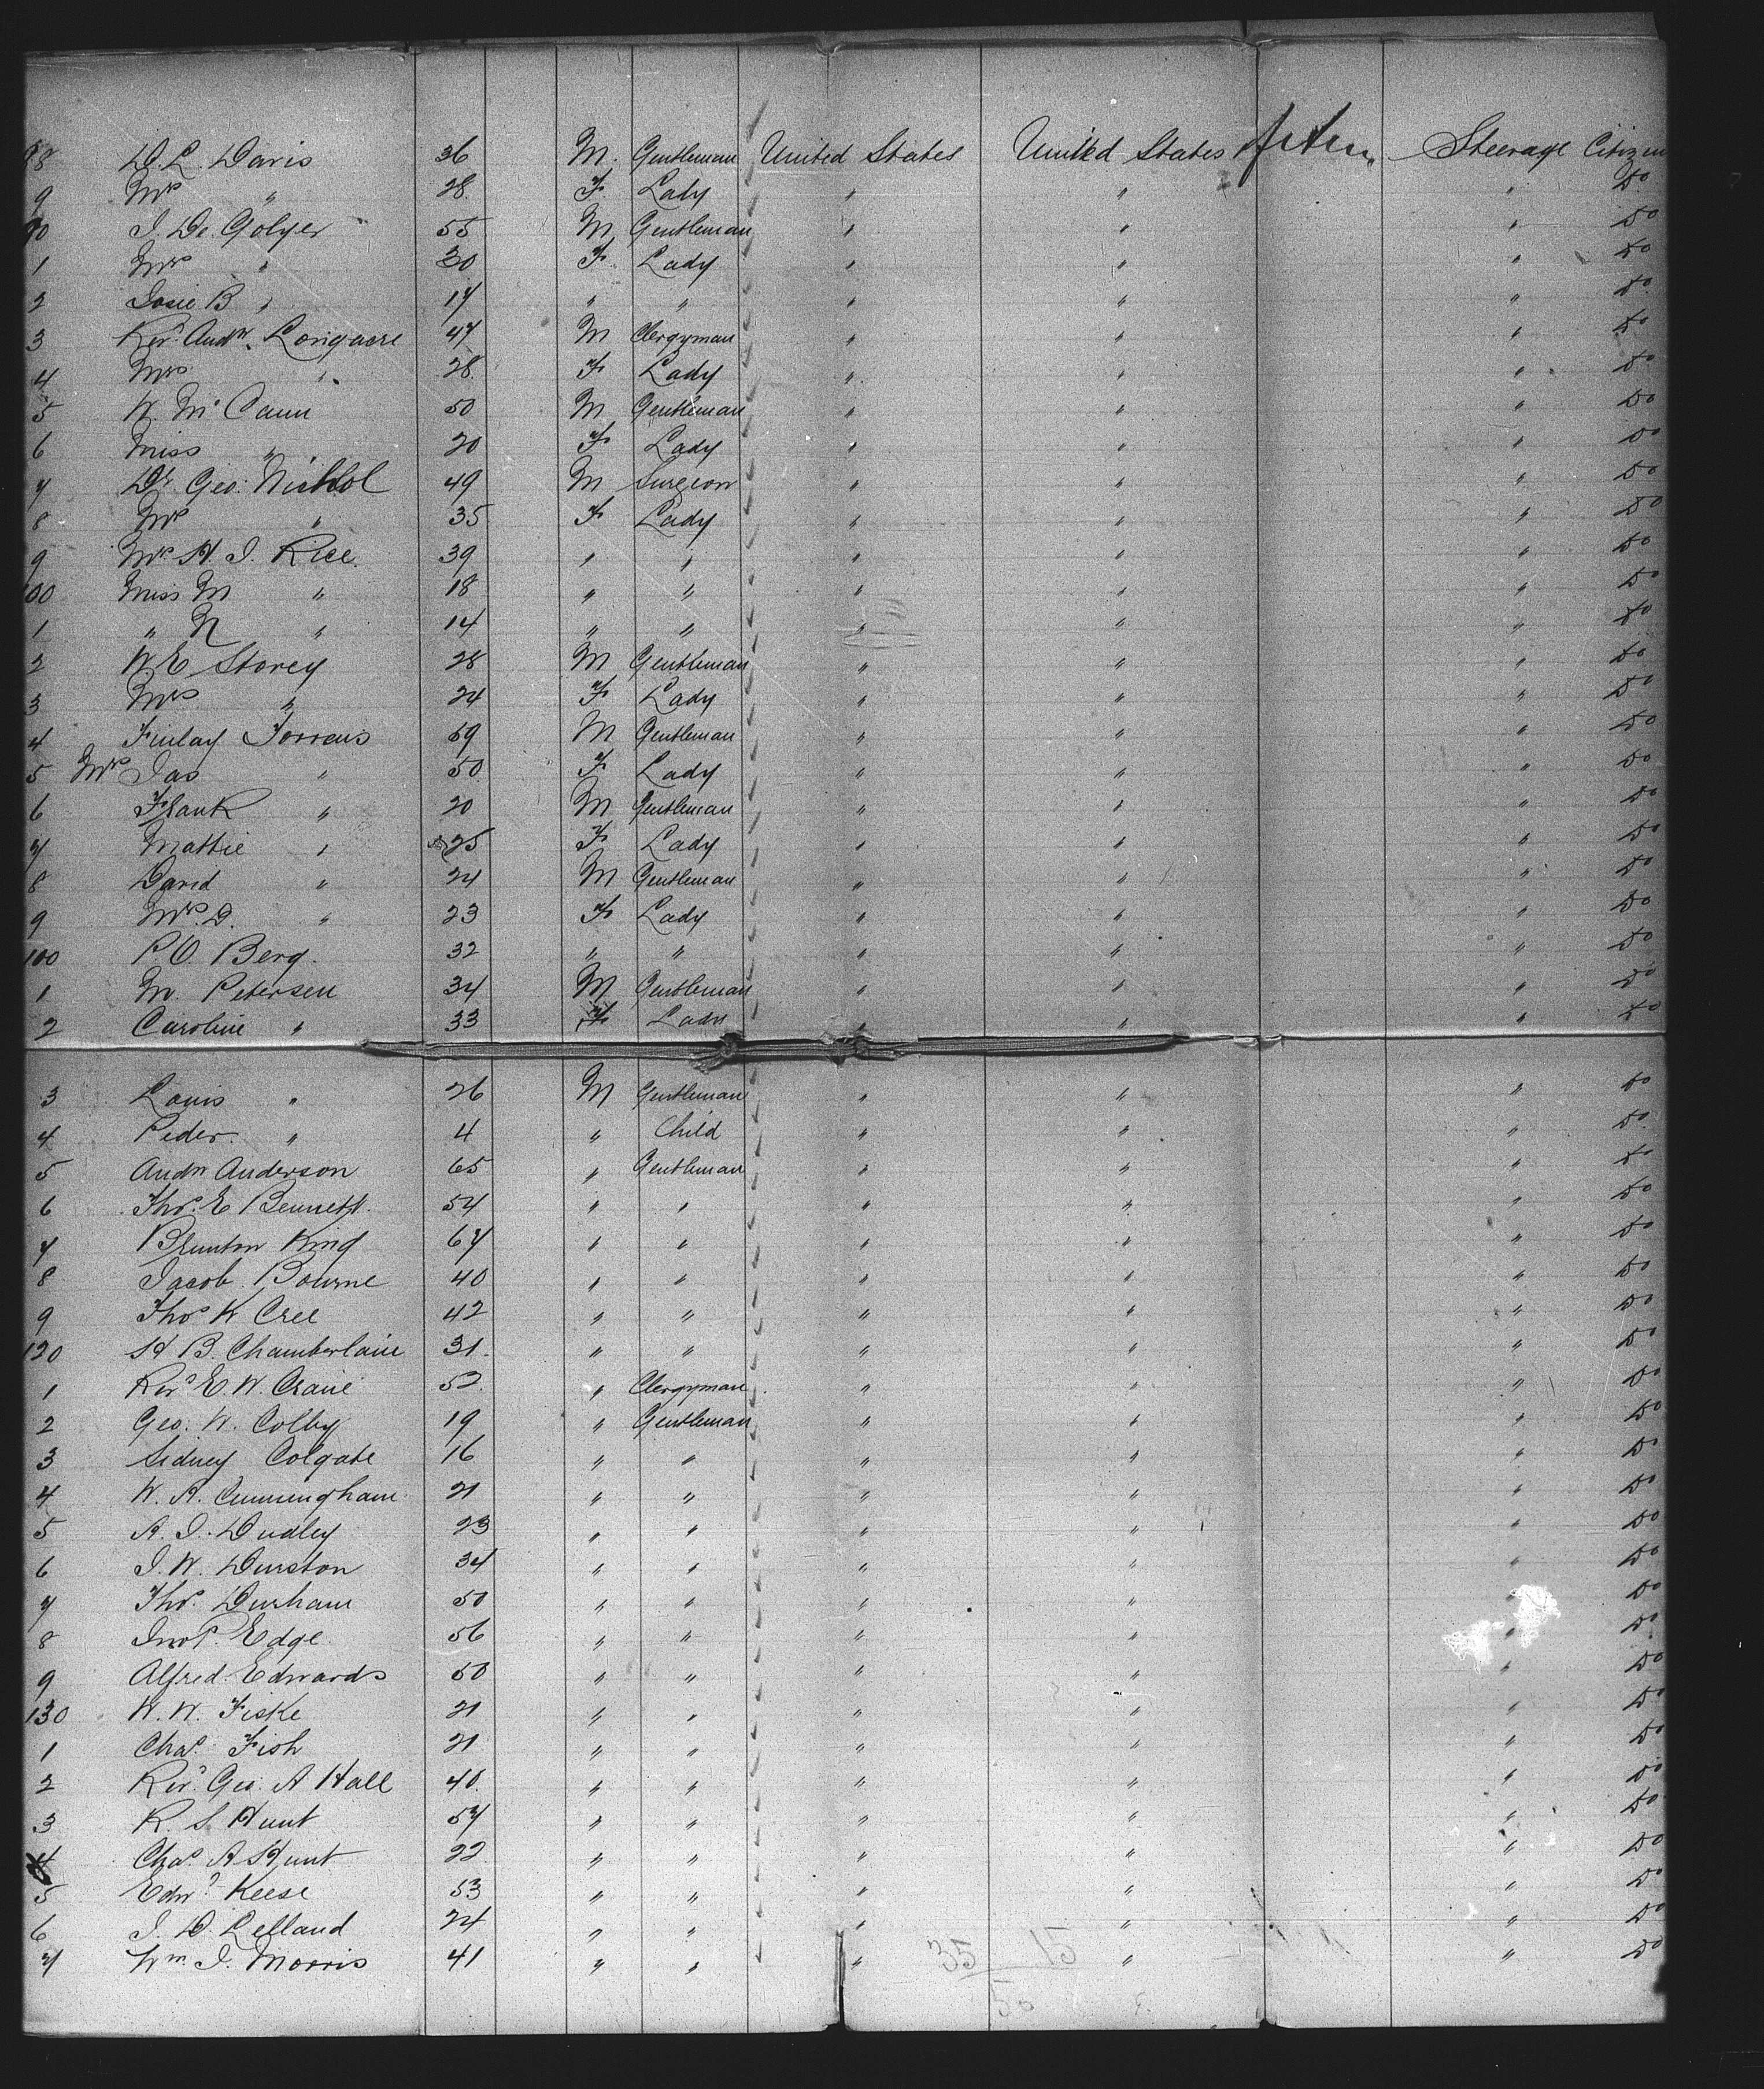 88 D. L. Davis 36 M. Gentleman United States United States After Steerage Citizen
9 Mrs " 28 F. Lady " " " Do
90 J. De Golyer 55 M Gentleman " " " Do
1 Mrs " 30 F. Lady " " " Do
2 Josie B " 17 " " " " " Do
3 Revd. Andw. Longacre 47 M Clergyman " " " Do
4 Mrs " 28. F Lady " " " Do
5 W. McCann 50 M Gentleman " " " Do
6 Miss " 20 F Lady " " " Do
7 Dr. Geo: Nichol 49 M Surgeon " " " Do
8 Mrs " 35 F Lady " " " Do
9 Mrs H. J. Rice. 39 " " " " " Do
100 Miss M " 18 " " " " " Do
1 " N " 14 " " " " " Do
2 W E Storey 28 M Gentleman " " " Do
3 Mrs " 24 F Lady " " " Do
4 Finlay Torrens 69 M Gentleman " " " Do
5 Mrs Jas " 50 F Lady " " " Do
6 Frank " 20 M Gentleman " " " Do
7 Mattie " 25 F Lady " " " Do
8 David " 24 M Gentleman " " " Do
9 Mrs. D. " 23 F Lady " " " Do
100 P. O. Berg. 32 " " " " " Do
1 M. Petersen 34 M Gentleman " " " Do
2 Caroline " 33 F Lady " " " Do
3 Louis " 26 M Gentleman " " " Do
4 Peder. " 4 " Child " " " Do
5 Andw Anderson 65 " Gentleman " " " Do
6 Thos. E Bennett. 54 " " " " " Do
7 Brunton King 67 " " " " " Do
8 Jacob Bourne 40 " " " " " Do
9 Thos W Cree 42 " " " " " Do
120 H B. Chamberlain 31. " " " " " Do
1 Revd E. W. Crane 52. " Clergyman " " " Do
2 Geo. W. Colby 19 " Gentleman " " " Do
3 Sidney Colgate 16 " " " " " Do
4 W. A. Cunningham 21 " " " " " Do
5 A. J. Dudley 23 " " " " " Do
6 J. W. Durston 34 " " " " " Do
7 Thos. Durham 50 " " " " " Do
8 Jno P. Edge 56 " " " " " Do
9 Alfred Edwards 50 " " " " " Do
130 W. W. Fiske 21 " " " " " Do
1 Chas. Fish 21 " " " " " Do
2 Revd Geo. A Hall 40. " " " " " Do
3 R. S. Hunt 57 " " " " " Do
4 Chas. A Hunt 22 " " " " " Do
5 Edwd Keese 53 " " " " " Do
6 J. D. Lelland 24 " " " " " Do
7 Wm. J. Morris 41 " " " " " Do
35 15
50